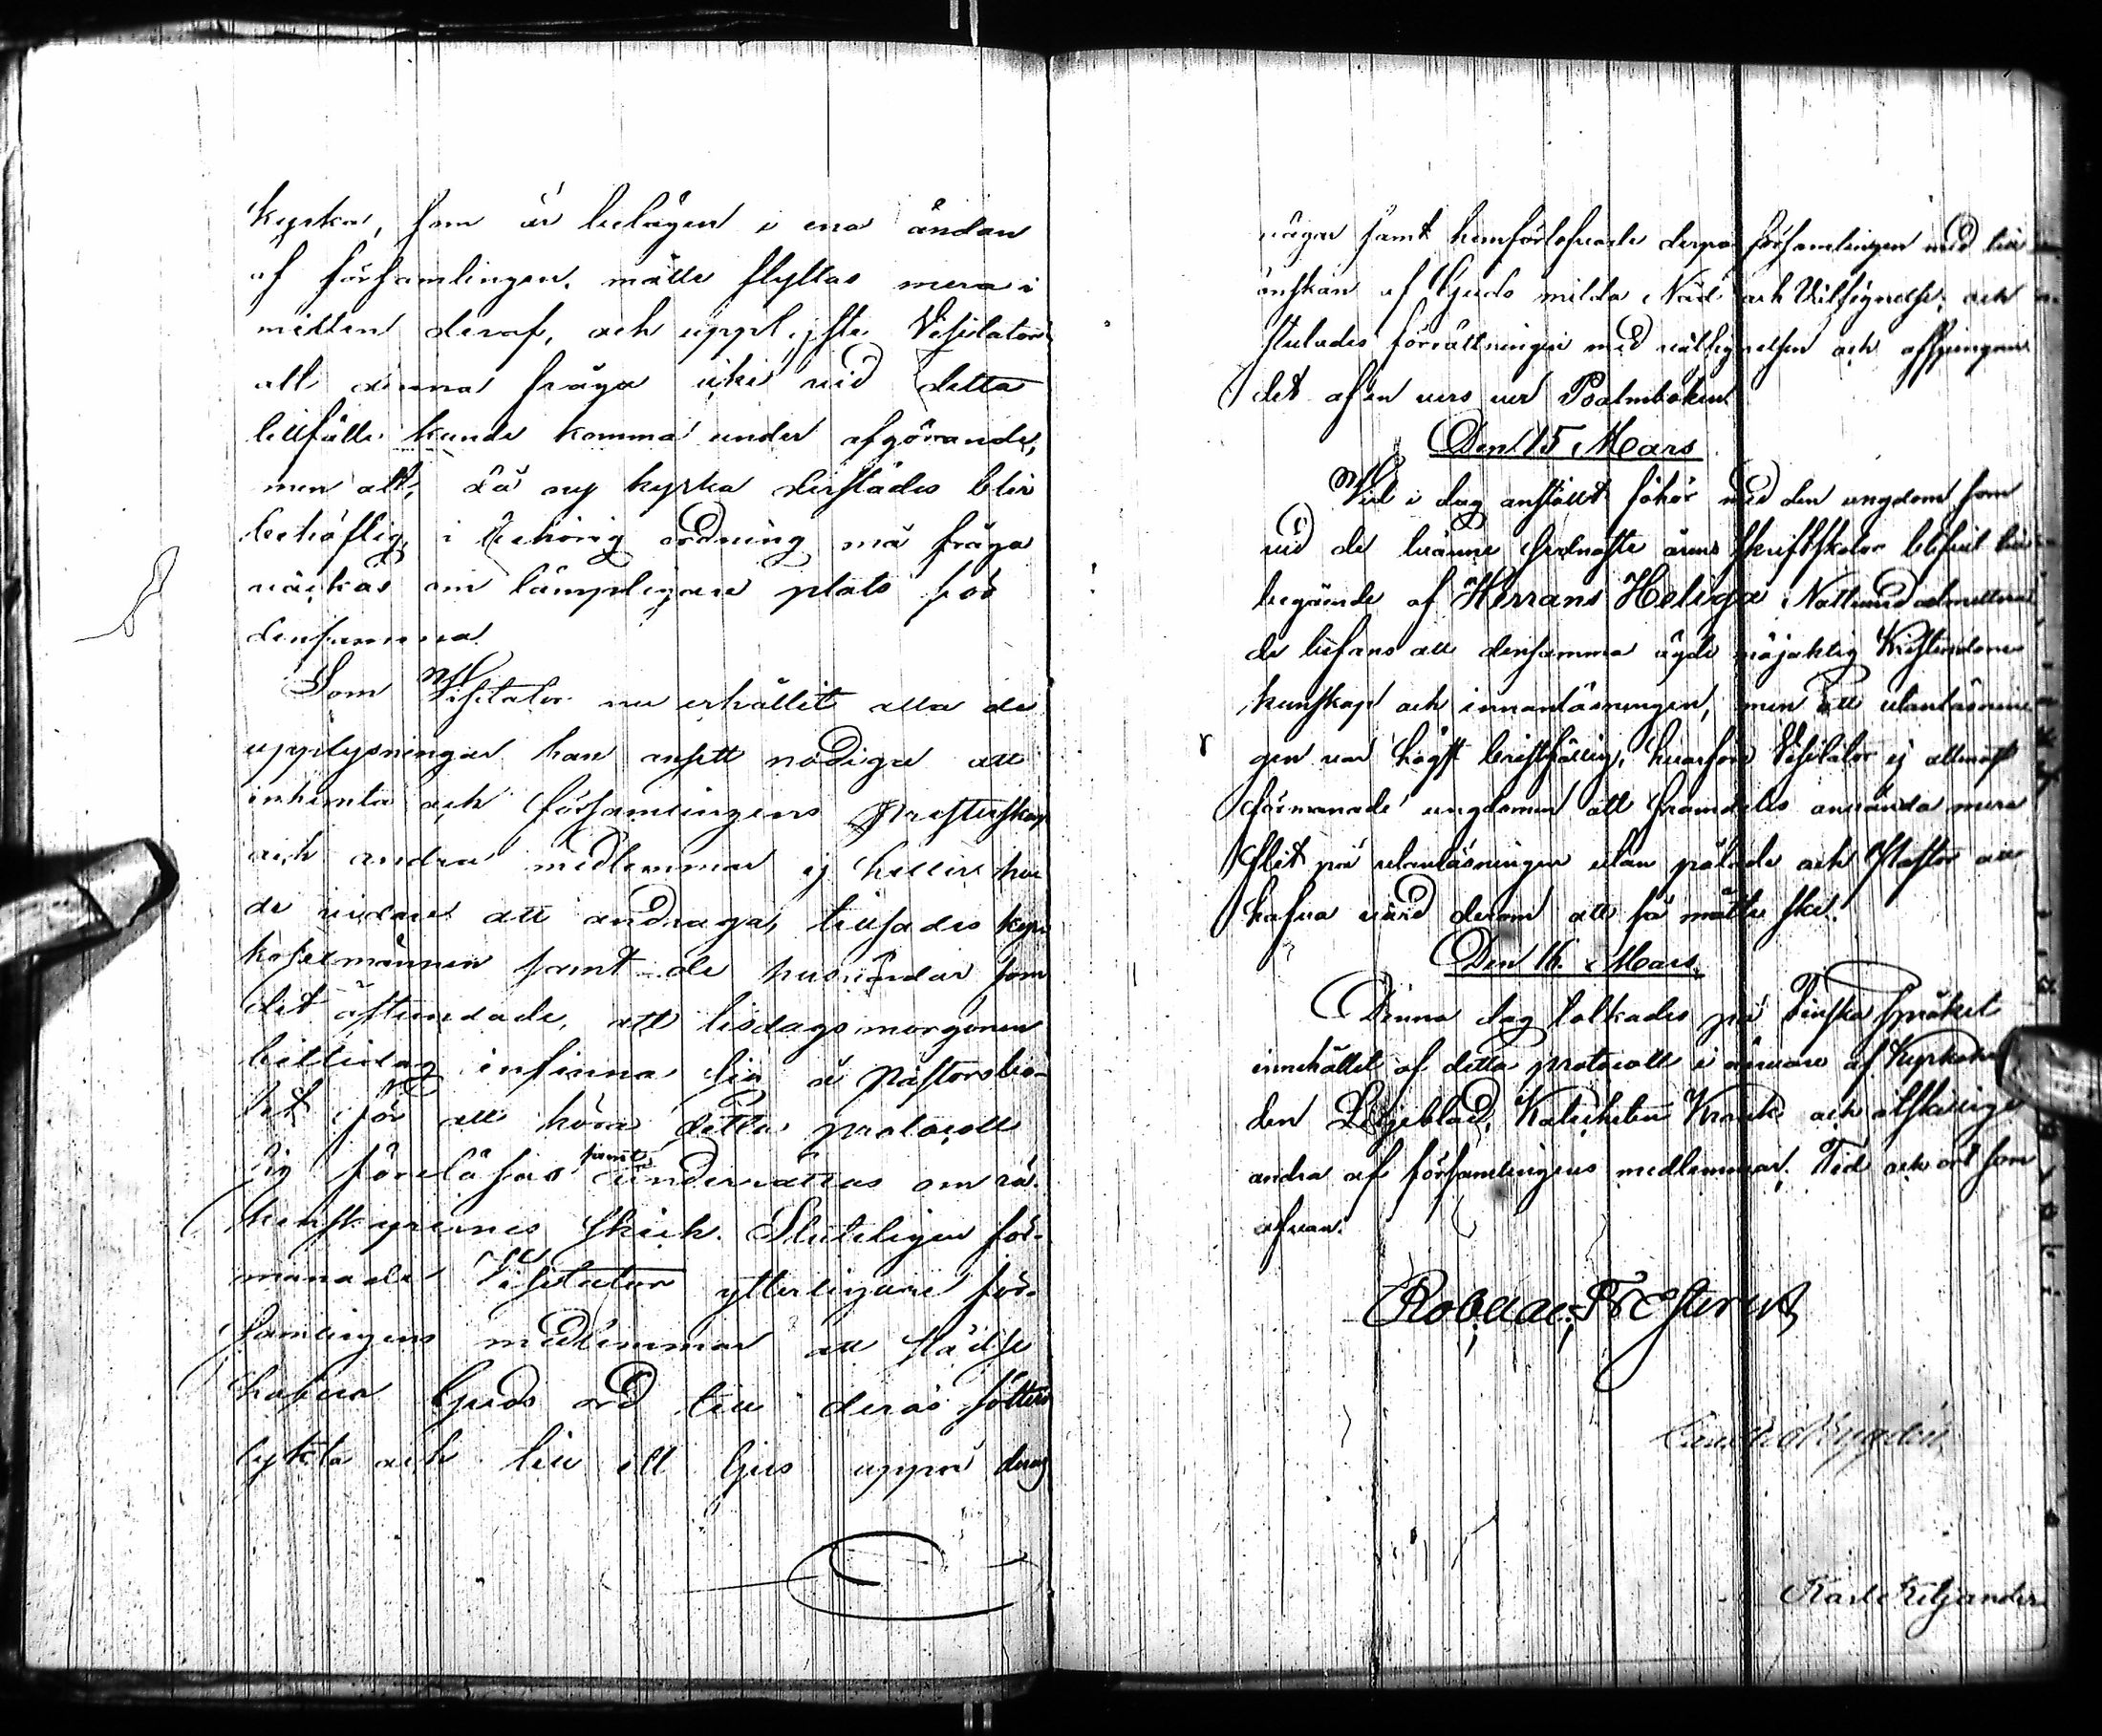 kyrka, som är belägen i ena ändan
af församlingen, måtte flyttas mera i
midten deraf, och upplyste Visitator
att denna fråga icke vid detta
tillfälle kunde komma under afgörande,
men att, då ny kyrka derstädes blir
behöflig, i behörig ordning må fråga
väckas om lämpligare plats för
densamma.
Som Visitator nu erhållit alla de
upplysningar han ansett nödiga att
inhemta och församlingens Presterskap
och andra medlemmar ej heller ha-
de vidare att andraga, tillsades kyr-
kosexmännen samt de husbönder som
det åstundade, att tisdagsmorgonen
bittidag infinna sig å Pastorsbo-
let för att höra detta protocoll
sig föreläsas samt underrättas om rä-
kenskapernes skick. Slutligen för-
manade Visitator ytterligare för-
samlingens medlemmar att städse
hafva Guds ord till deras fötters
lykta och till ett ljus uppå deras
vägar samt hemförlofvade derpå församlingen med till-
önskan af Guds milda Nåd och Välsignelse; och
slutades förrättningen med välsignelsen och afsjungan-
det af en vers ur Psalmboken.
Den 15 Mars
Vid i dag anställt förhör med den ungdom som
vid de tvänne sednaste årens skriftskolor blifvit till
begående af Herrans Heliga Nattvard admittera-
de befans att densamma ägde nöjaktig Kristendoms
kunskap och innanläsningen, men att utanläsnin-
gen var högst bristfällig, hvarföre Visitator ej allenast
förmanade ungdomen att framdeles använda mera
flit på utanläsningen utan pålade och Pastor att
hafva vård derom att så måtte ske.
Den 16. Mars
Denna dag tolkades på Finska språket
innehållet af detta protocoll i närvaro af Kyrkoher-
den Liljeblad, Katecheten Krank och åtskillige
andra af församlingens medlemmar. Tid och ort som
ofvan.
Karl Kiljander